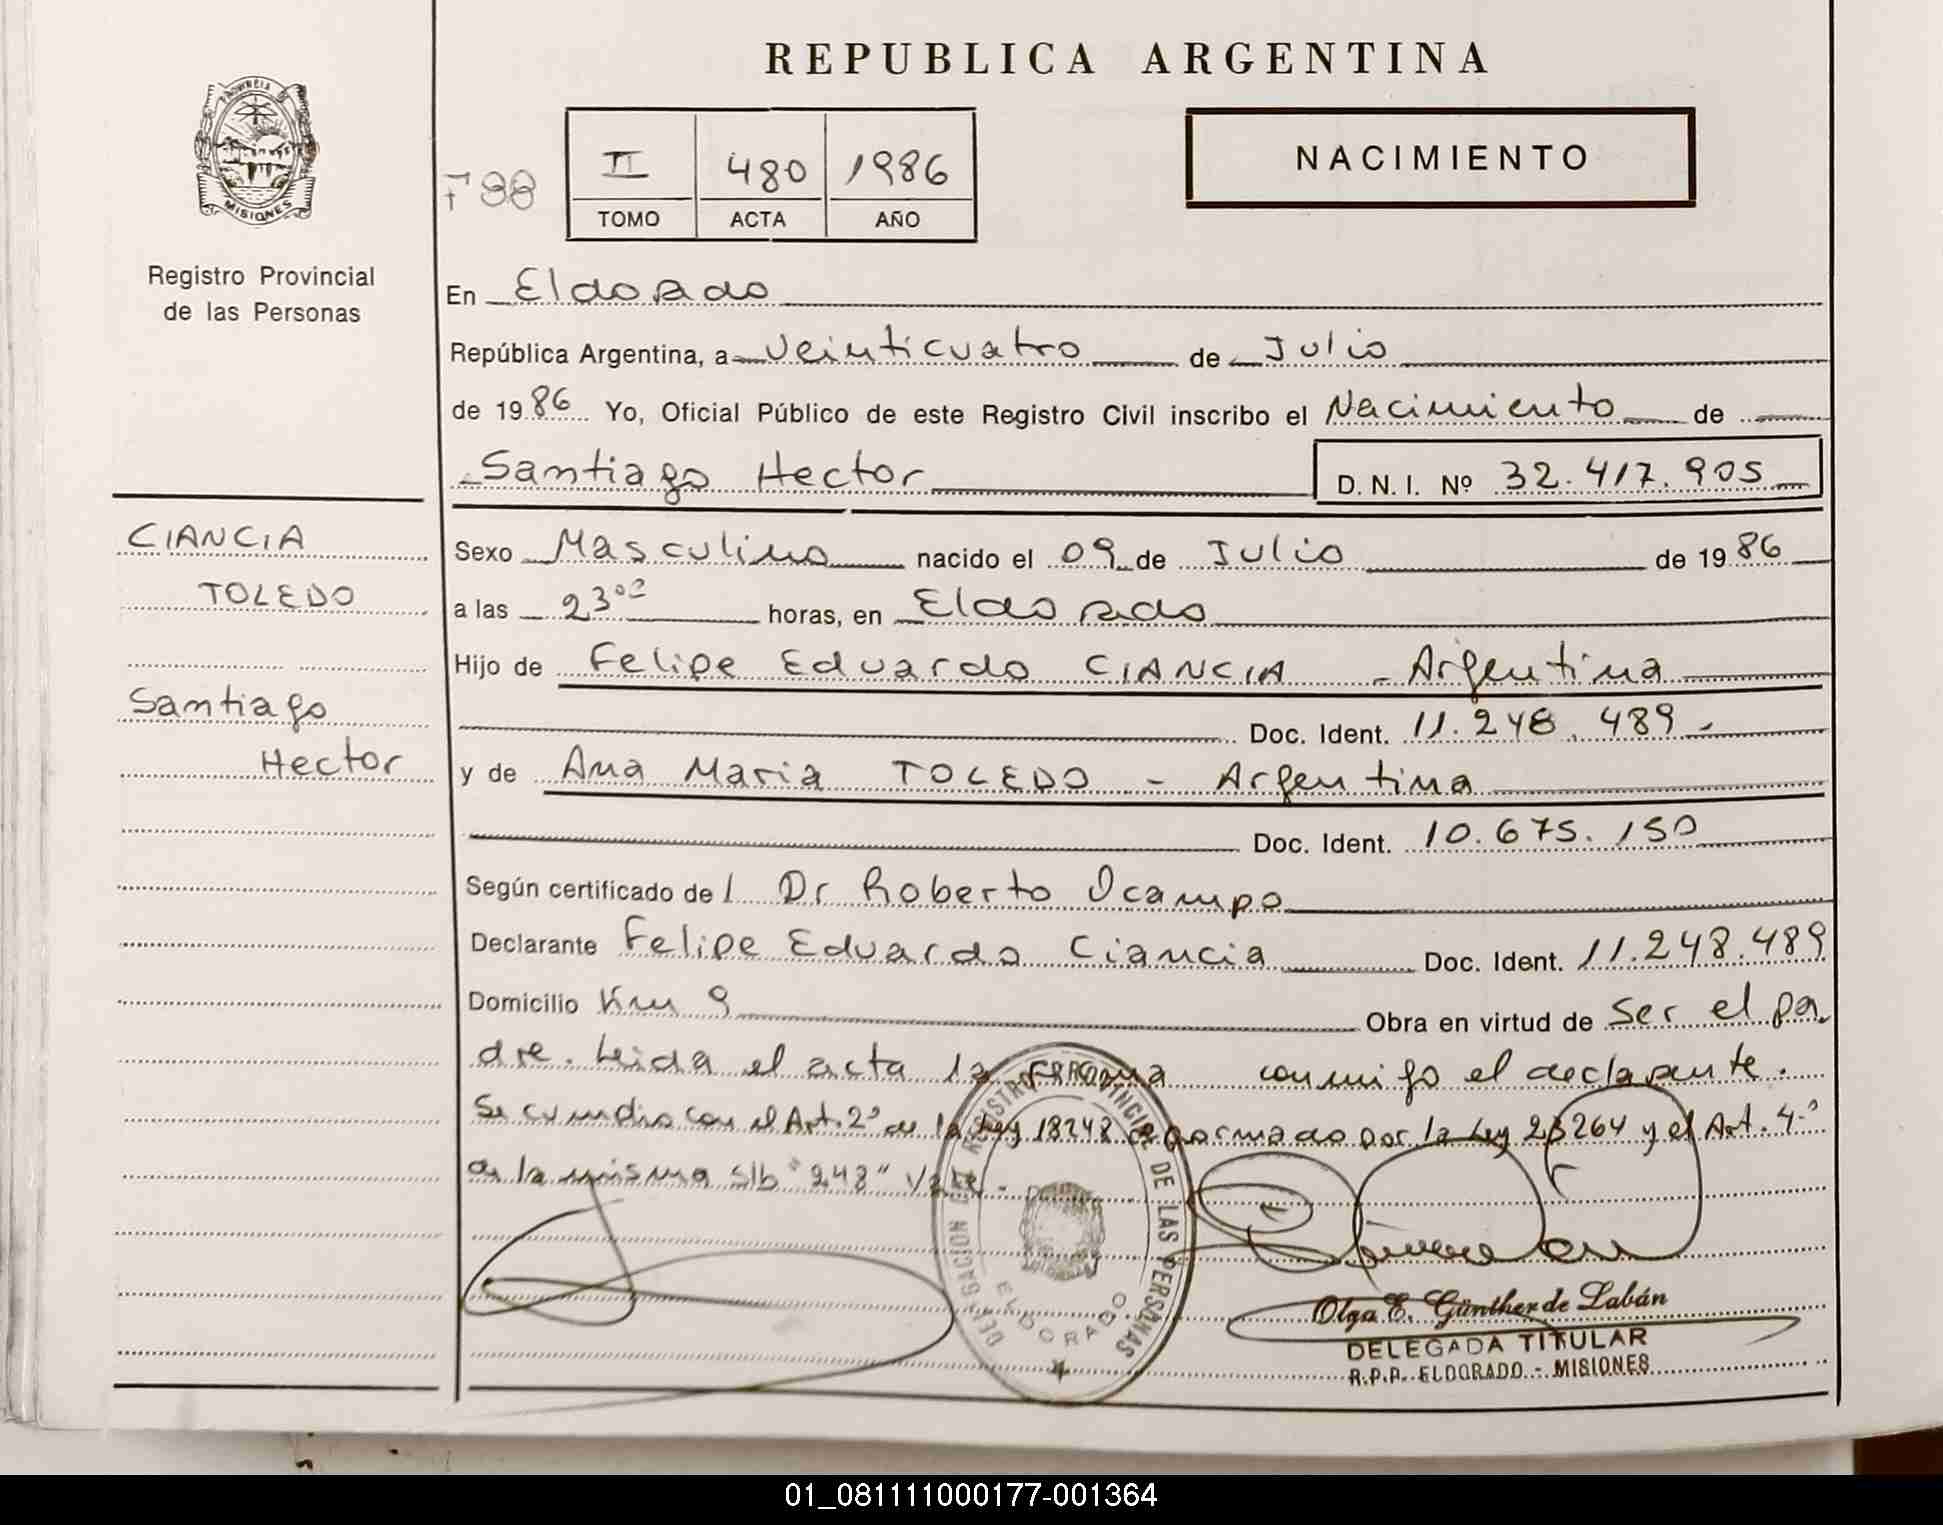 REPUBLICA ARGENTINA
PROVINCIA DE
MISIONES
Registro Provincial
de las Personas
F 98
II 480 1986
TOMO ACTA AÑO
NACIMIENTO
En Eldorado
República Argentina, a veinticuatro de Julio
de 1986 Yo, Oficial Público de este Registro Civil inscribo el Nacimiento de
Santiago Hector D. N. I. Nº 32.417.905
CIANCIA
TOLEDO
Santiago
Hector
Sexo Masculino nacido el 09 de Julio de 1986
a las 23°° horas, en Eldorado
Hijo de Felipe Eduardo CIANCIA - Argentina
Doc. Ident. 11.248.489-
y de Ana Maria TOLEDO - Argentina
Doc. Ident. 10.675.150
Según certificado de l Dr Roberto Ocampo
Declarante Felipe Eduardo Ciancia Doc. Ident. 11.248.489
Domicilio Km 9 Obra en virtud de ser el pa-
dre. Leida el acta la firma conmigo el declarante.
Se cumplio con el Art. 2° de la Ley 18248 reformado por la Ley 23264 y el Art. 4°
de la misma s/b "248" Vale.-
DELEGACION REGISTRO PROVINCIAL DE LAS PERSONAS
ELDORADO
Olga E. Günther de Labán
DELEGADA TITULAR
R.P.P. ELDORADO - MISIONES
01_081111000177-001364